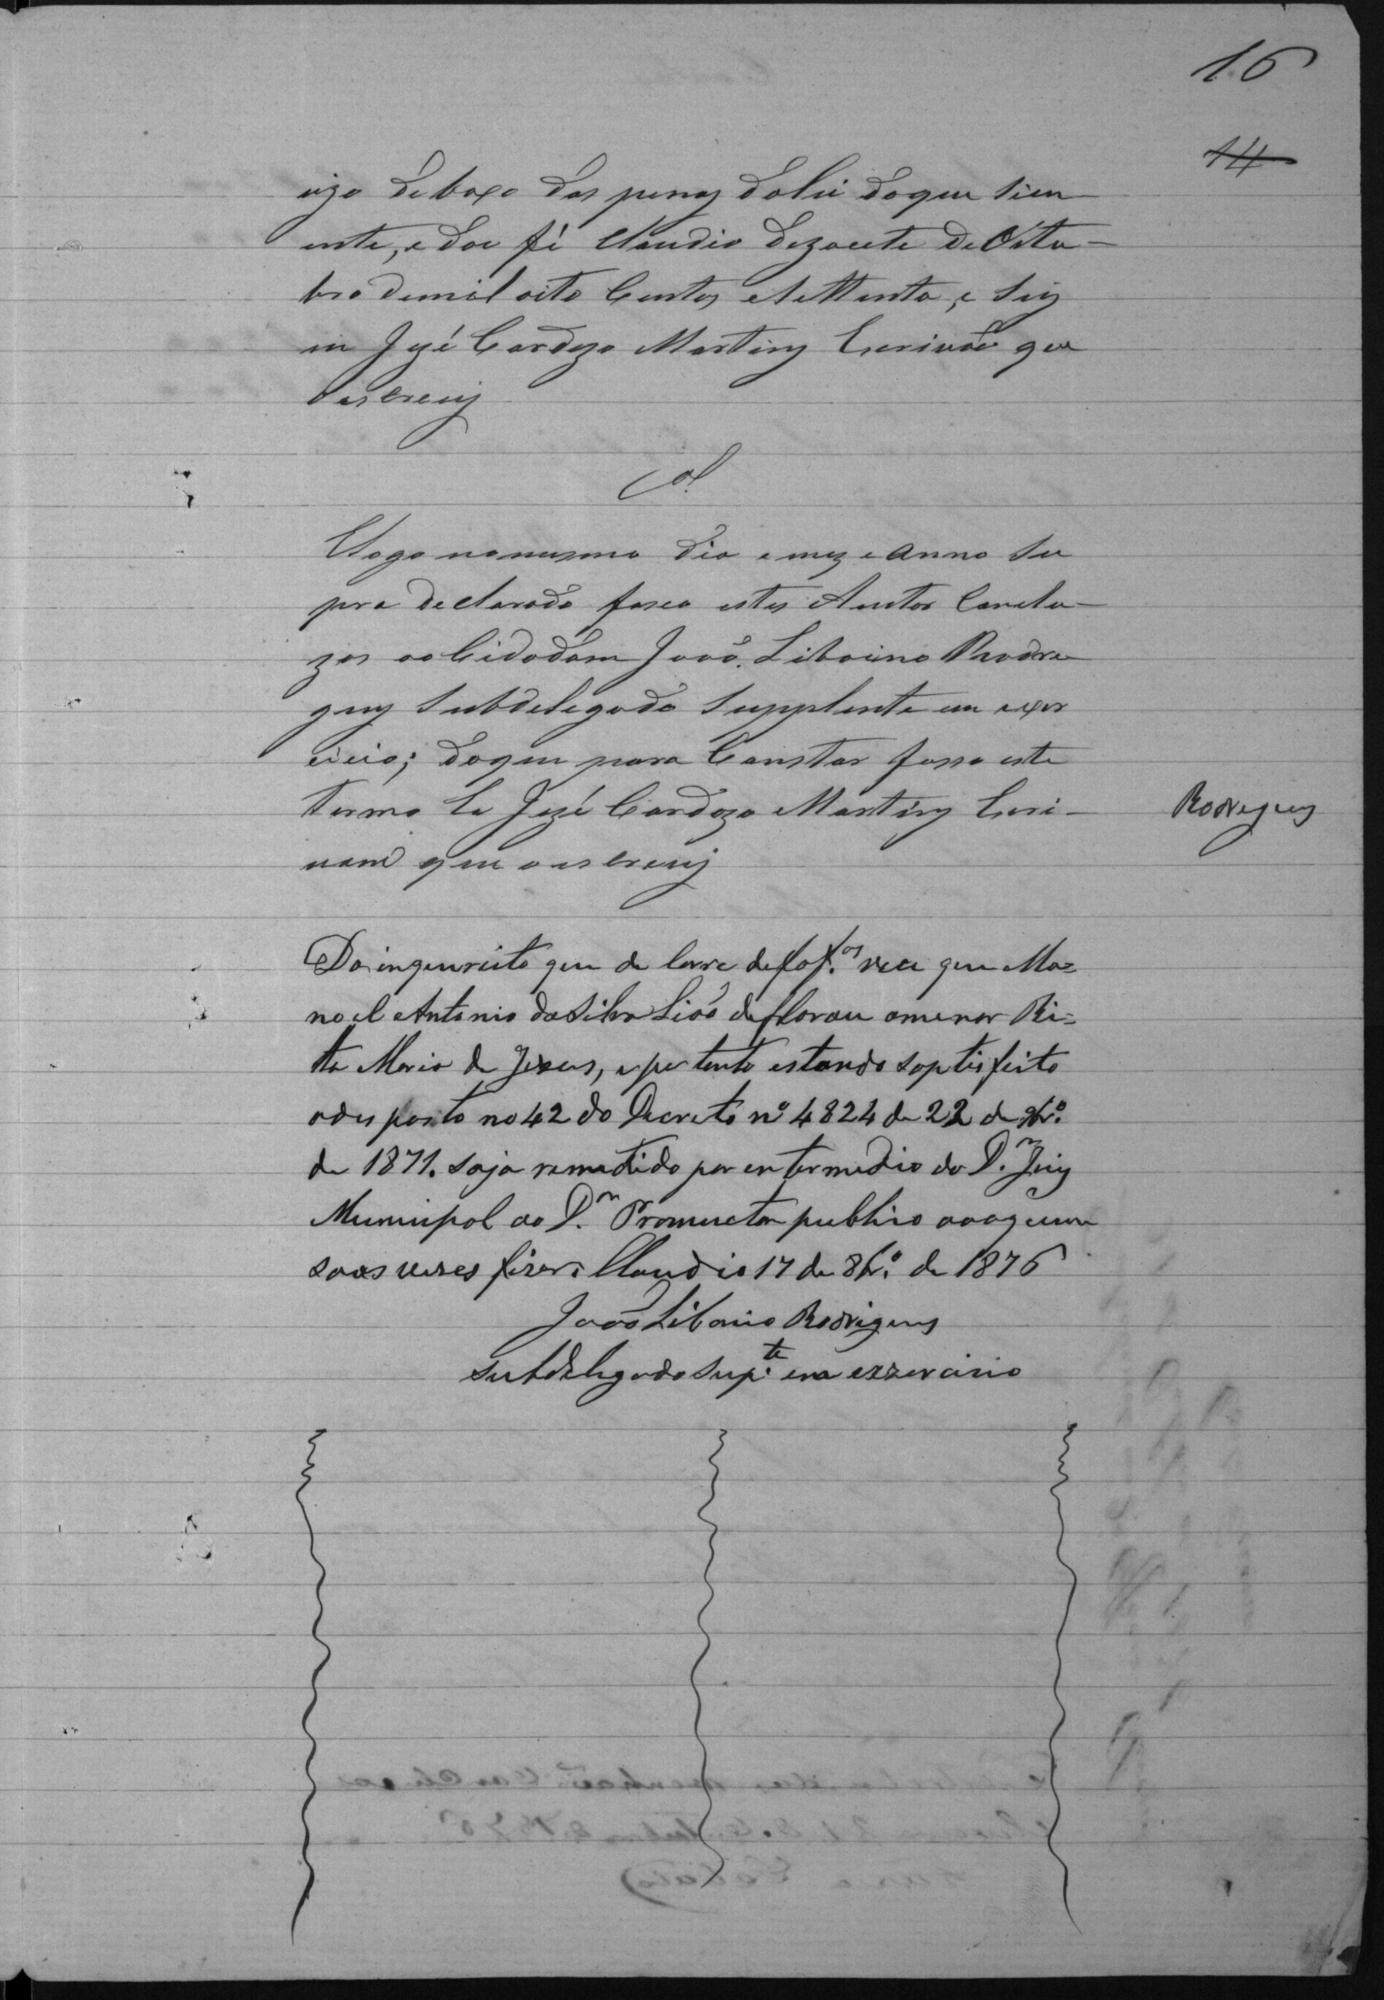 16
14
uizo debaxo das penas da lei do que sien
ente, e dou fé Claudio dezacete de Oitu-
bro de mil oito Centos e settenta, e seis
eu José Cardozo Martins Escrivão que
o escrevij
Elogo no mesmo dia e mez e anno su
pra declarado faseo estes Auttos Conclu-
zos ao Cidadam João Libaino Rodri
gues Subdelegado Supplente em exer
cicio; do que para Constar fasso este
termo Eu José Cardozo Martins Escri-
vam que o escrevij
Rodrigues
Do inqueurito que de corre de fof.as vece que Ma=
noel Antonio da Silva Lião deflorou a menor Ri=
ta Maria de Jezus, e portanto estando saptisfeito
o desposto no 42 do Decreto nº 4824 de 22 de 9br.º
de 1871. Seja remetido por entermedio do D.r Juiz
Municipal ao D.r Promuctor publico ou a quem
suas vezes fizer. Claudio 17 de 8br.º de 1876
João Libanio Rodrigues
Subdelegado Sup.te em exzercicio